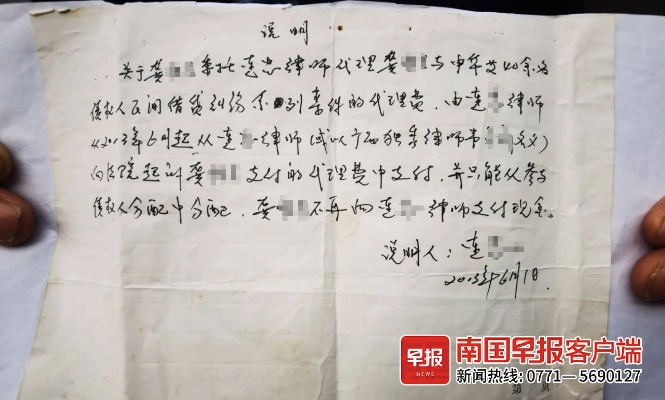 说明
关于龚 委托连忠律师代理龚 与申华艾四余名
债权人民间借贷纠纷 余 列案件的代理费，由连 律师
从2013年6月起从连 律师(或以广西独秀律师事 名义)
向法院起诉龚 支付的代理费中支付，并只能从参与
债权人分配中分配，龚 不再向连 律师支付现金。
说明人：连
2013年6月1日.
早报
NEWS
南国早报客户端
新闻热线：0771—5690127
第 页